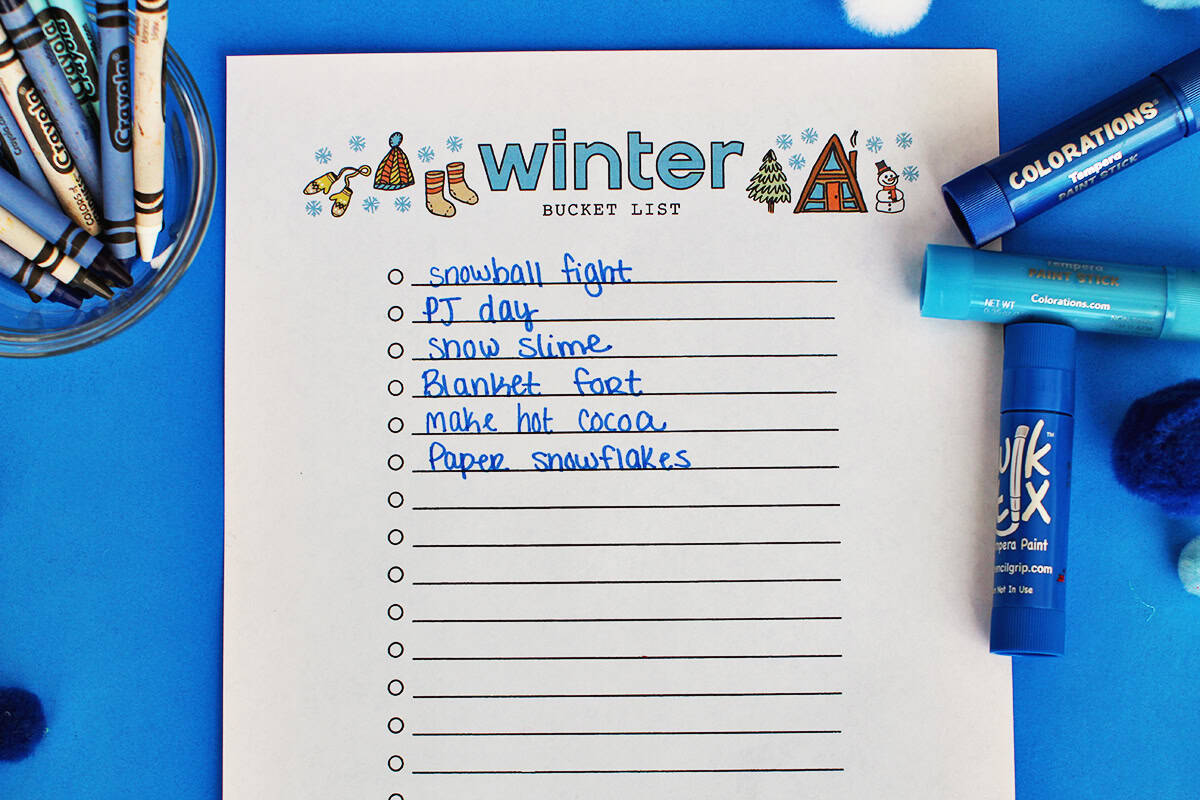 winter
BUCKET LIST
snowball fight
PJ day
snow slime
Blanket fort
make hot cocoa
Paper snowflakes
Crayola
Crayola
Crayola
COLORATIONS®
Tempera
PAINT STICK
Tempera
PAINT STICK
NET WT
Colorations.com
Paint
Not In Use